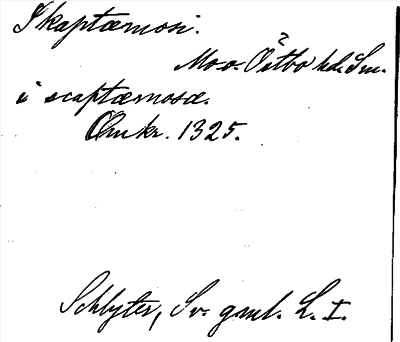 Skaptæmosi.
?
Mo o. Östbo hd. Sm.
i scaptæmosæ.
Omkr. 1325.
Schlyter, Sv. gaml. L. I.